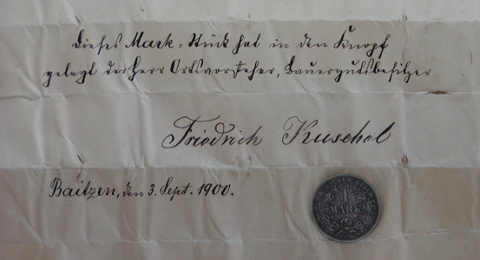 Dieses Mark-Stück hat in den Knopf
gelegt der Herr Ortsvorsteher, Bauergutsbesitzer
Friedrich Kuschel
Baitzen, den 3. Sept. 1900.
1
MARK